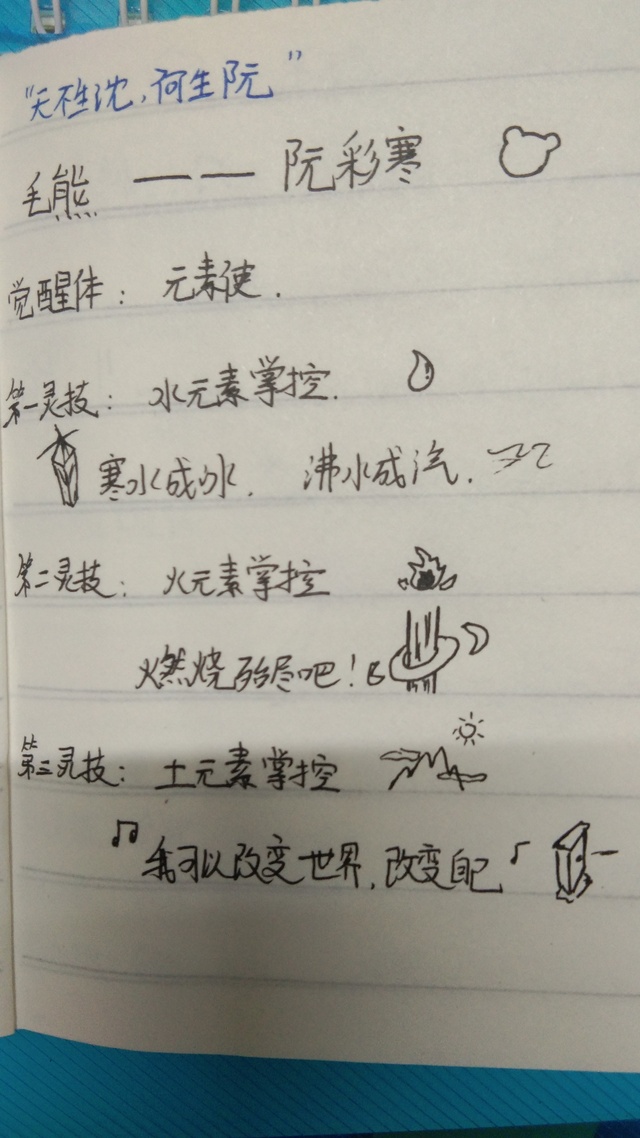 “天不生沈，何生阮”
毛熊 —— 阮彩寒
觉醒体：元素使．
第一灵技：水元素掌控．
寒水成冰． 沸水成汽．
第二灵技：火元素掌控
燃烧殆尽吧！
第三灵技：土元素掌控
♫我可以改变世界，改变自己♪